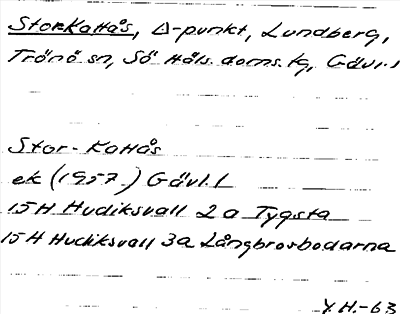 Storkattås, Δ-punkt, Lundberg,
Trönö sn, Sö Häls. doms. tg, Gävl. l
Stor-Kattås
ek (1957) Gävl. l
15H Hudiksvall 2a Tygsta
15H Hudiksvall 3a Långbrosbodarna
Y.H.-63